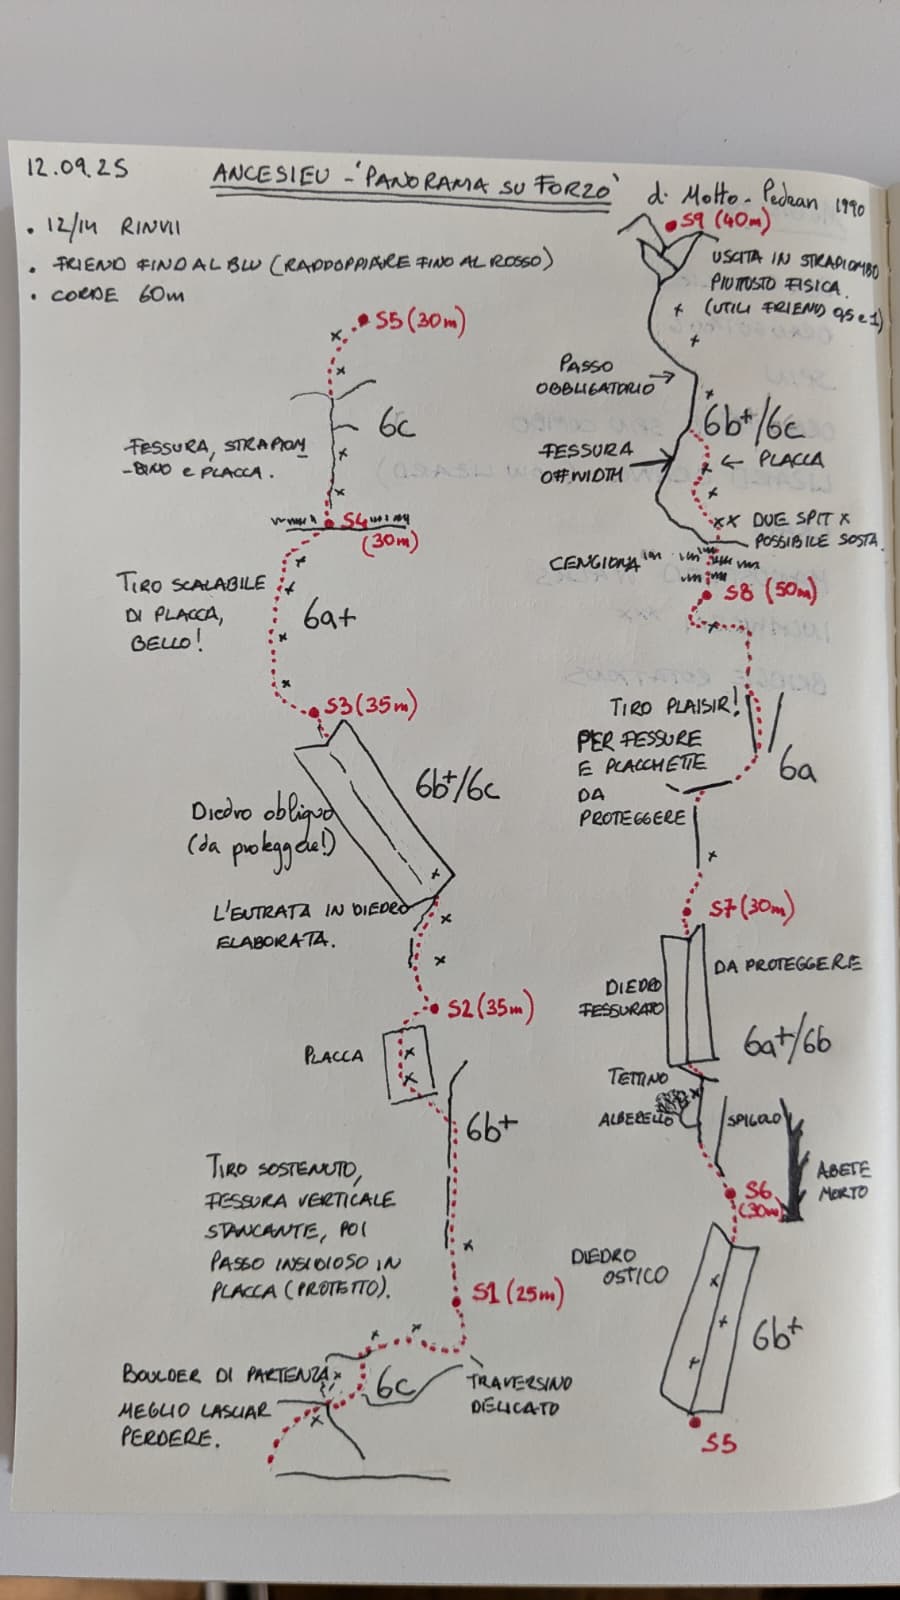 12.09.25
ANCESIEU - 'PANORAMA SU FORZO'
di Motto - Pedran 1990
• 12/14 RINVII
• FRIEND FINO AL BLU (RADDOPPIARE FINO AL ROSSO)
• CORDE 60m
S5 (30m)
6c
FESSURA, STRAPIOM
-BINO E PLACCA.
S4
(30m)
TIRO SCALABILE
DI PLACCA,
BELLO!
6a+
S3 (35m)
6b+/6c
Diedro obliquo
(da proteggere!)
L'ENTRATA IN DIEDRO
ELABORATA.
S2 (35m)
PLACCA
6b+
TIRO SOSTENUTO,
FESSURA VERTICALE
STANCANTE, POI
PASSO INSIDIOSO IN
PLACCA (PROTETTO).
S1 (25m)
BOULDER DI PARTENZA
MEGLIO LASCIAR
PERDERE.
6c
TRAVERSINO
DELICATO
S9 (40m)
USCITA IN STRAPIOMBO
PIUTTOSTO FISICA.
(UTILI FRIEND 0,5 e 1)
PASSO
OBBLIGATORIO
6b+/6c
FESSURA
OFFWIDTH
PLACCA
DUE SPIT X
POSSIBILE SOSTA.
CENGIONA
S8 (50m)
TIRO PLAISIR!
PER FESSURE
E PLACCHETTE
DA
PROTEGGERE
6a
S7 (30m)
DA PROTEGGERE
DIEDRO
FESSURATO
6a+/6b
TETTINO
ALBERELLO
SPIGOLO
ABETE
MORTO
S6
(30m)
DIEDRO
OSTICO
6b+
S5